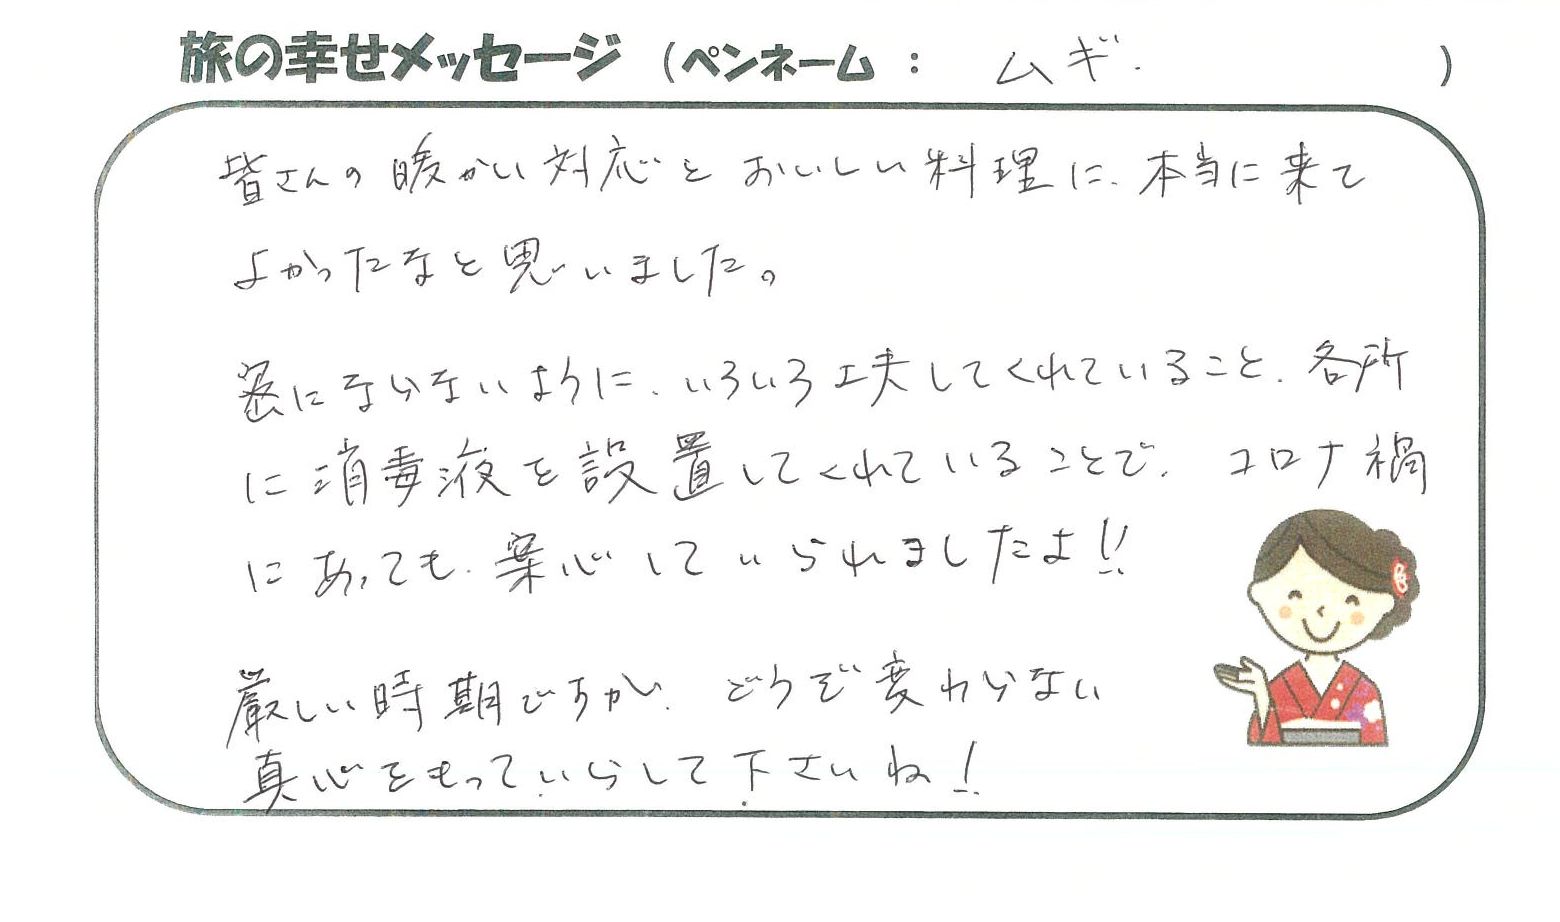 旅の幸せメッセージ (ペンネーム : ムギ. )
皆さんの暖かい対応とおいしい料理に、本当に来て
よかったなと思いました。
密にならないように、いろいろ工夫してくれていること、各所
に消毒液を設置してくれていることで、コロナ禍
にあっても、安心していられましたよ!!
厳しい時期ですが、どうぞ変わらない
真心をもっていらして下さいね!